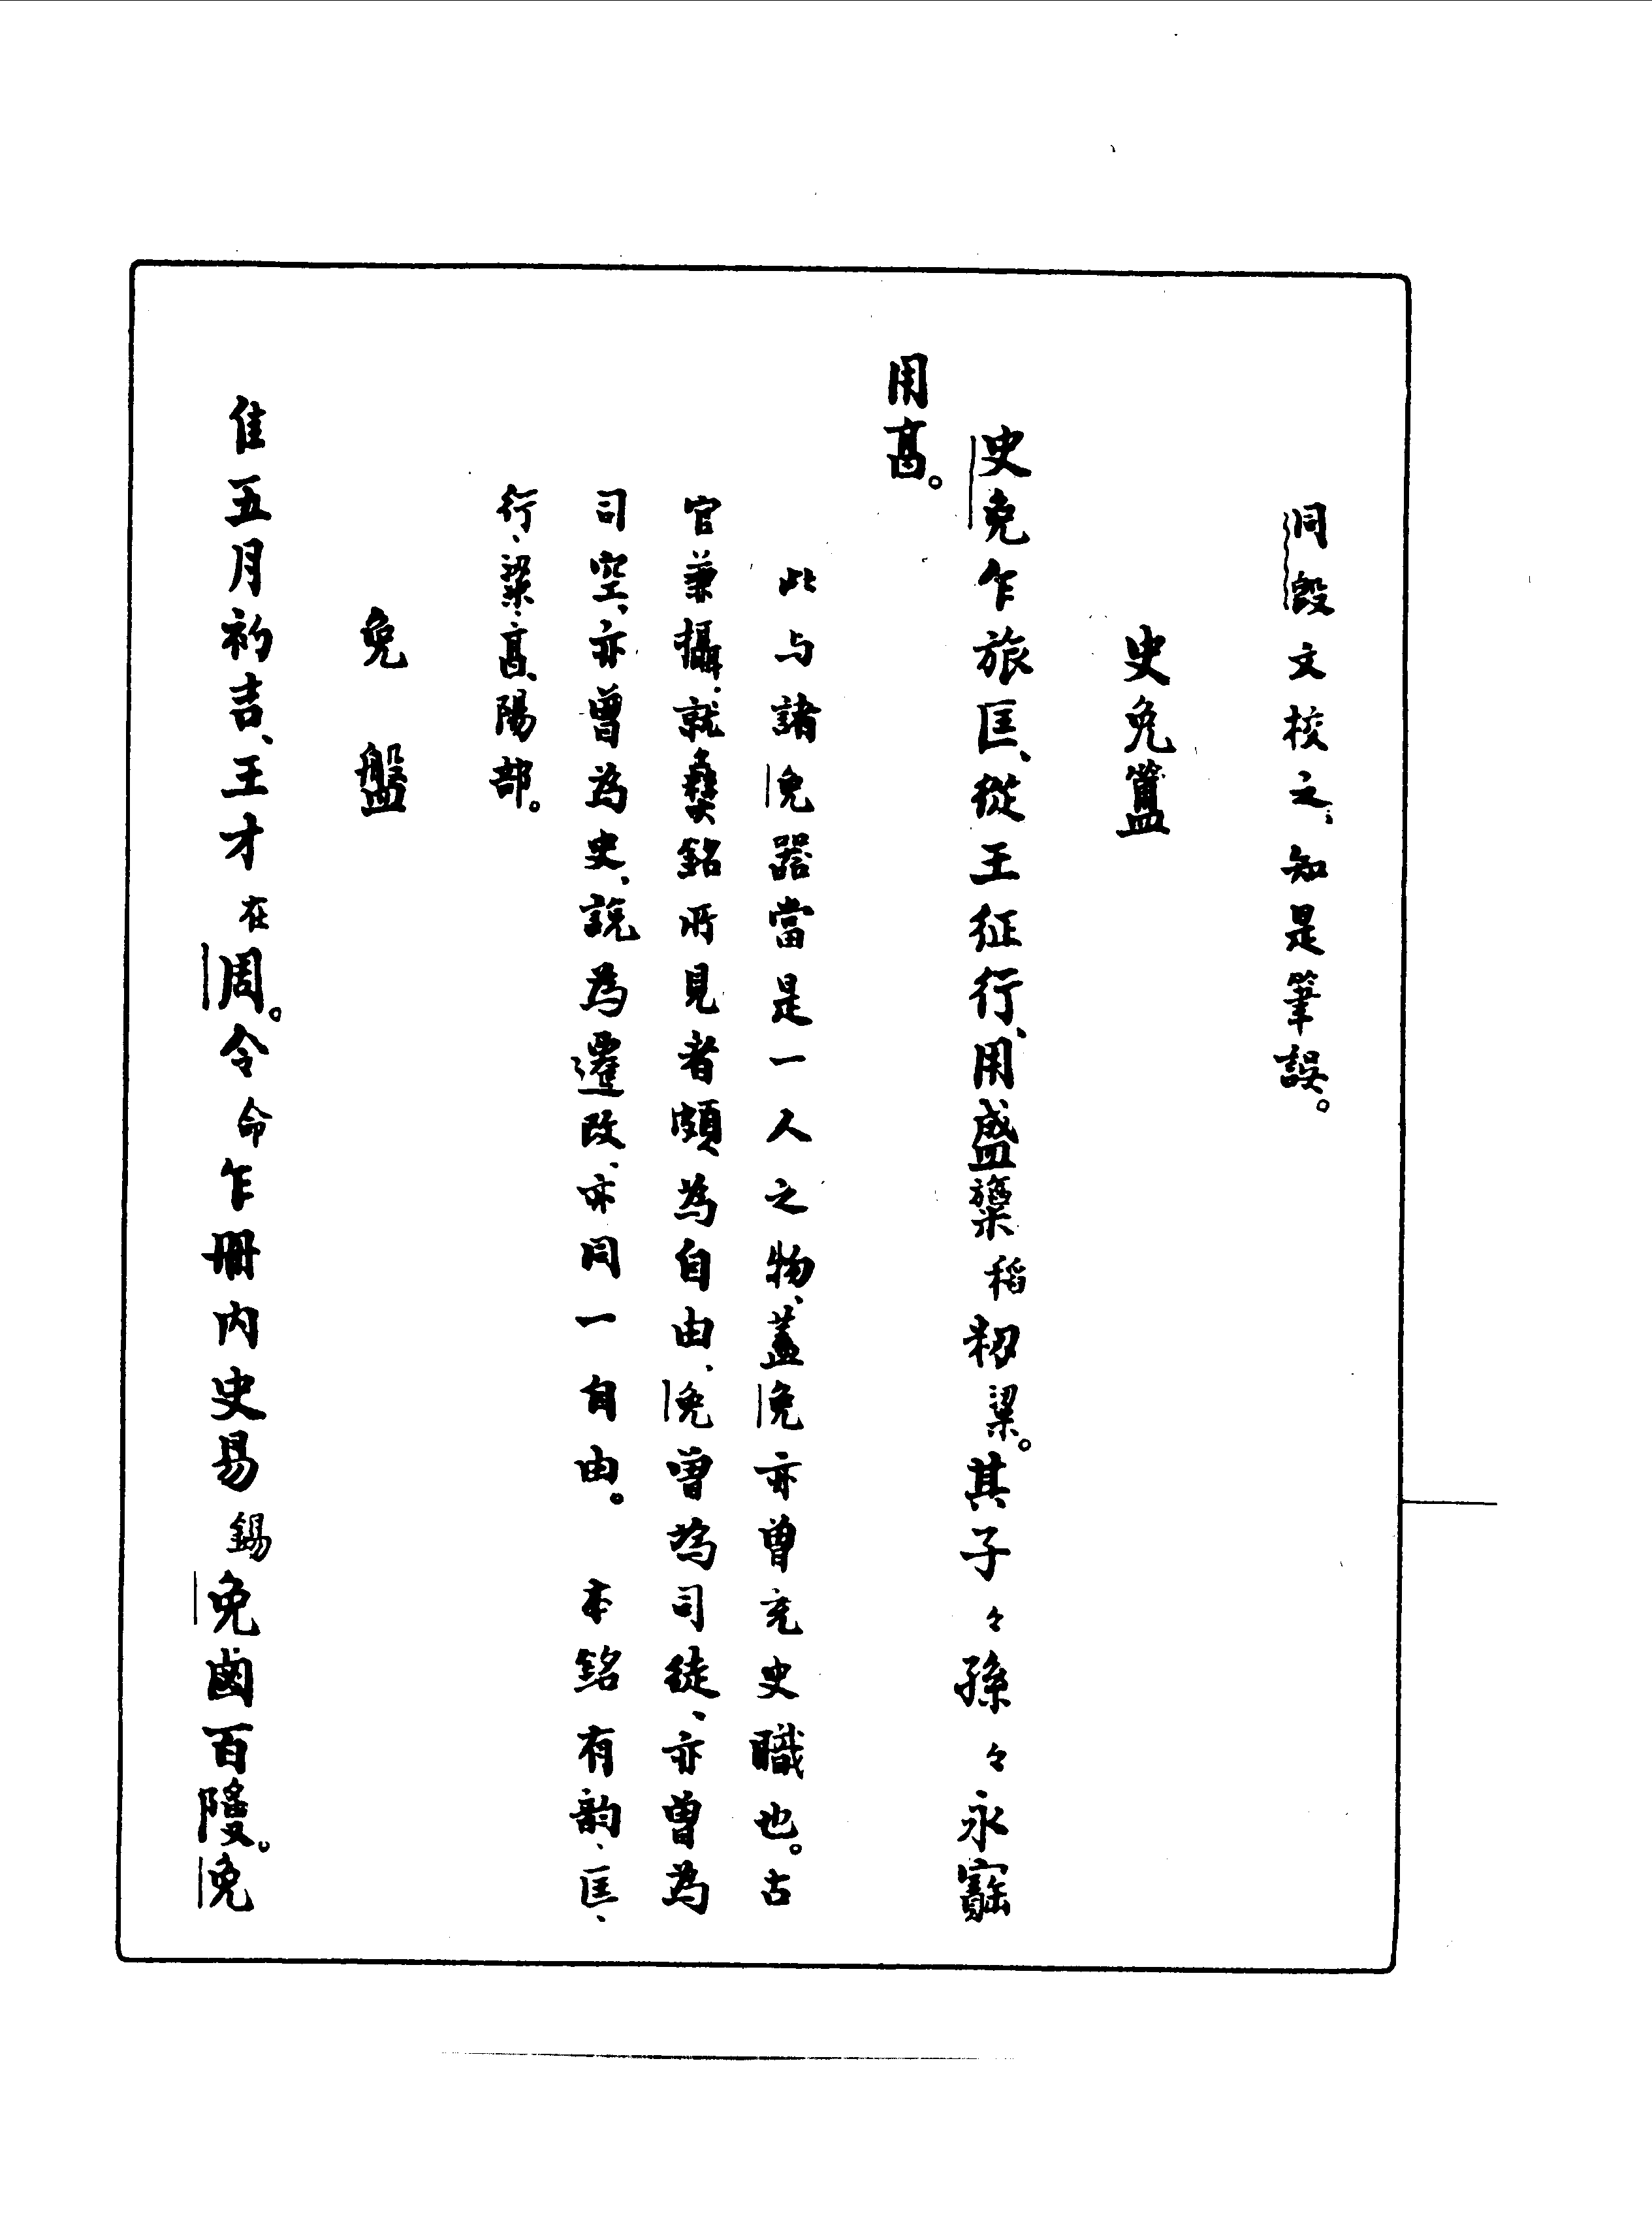 同𣪘文校之、知是筆誤。
史免簠
史免乍旅匡、從王征行、用盛稻粱。其子〻孫〻永寶
用亯。
此与諸免器當是一人之物、蓋免亦曾充史職也。古
官兼攝、就彝銘所見者頗為自由、免曾為司徒、亦曾為
司空、亦曾為史、說為遷改、亦同一自由。　本銘有韵、匡、
行、粱、亯、陽部。
免盤
隹五月初吉、王才在周。令命乍冊内史易錫免鹵百。免